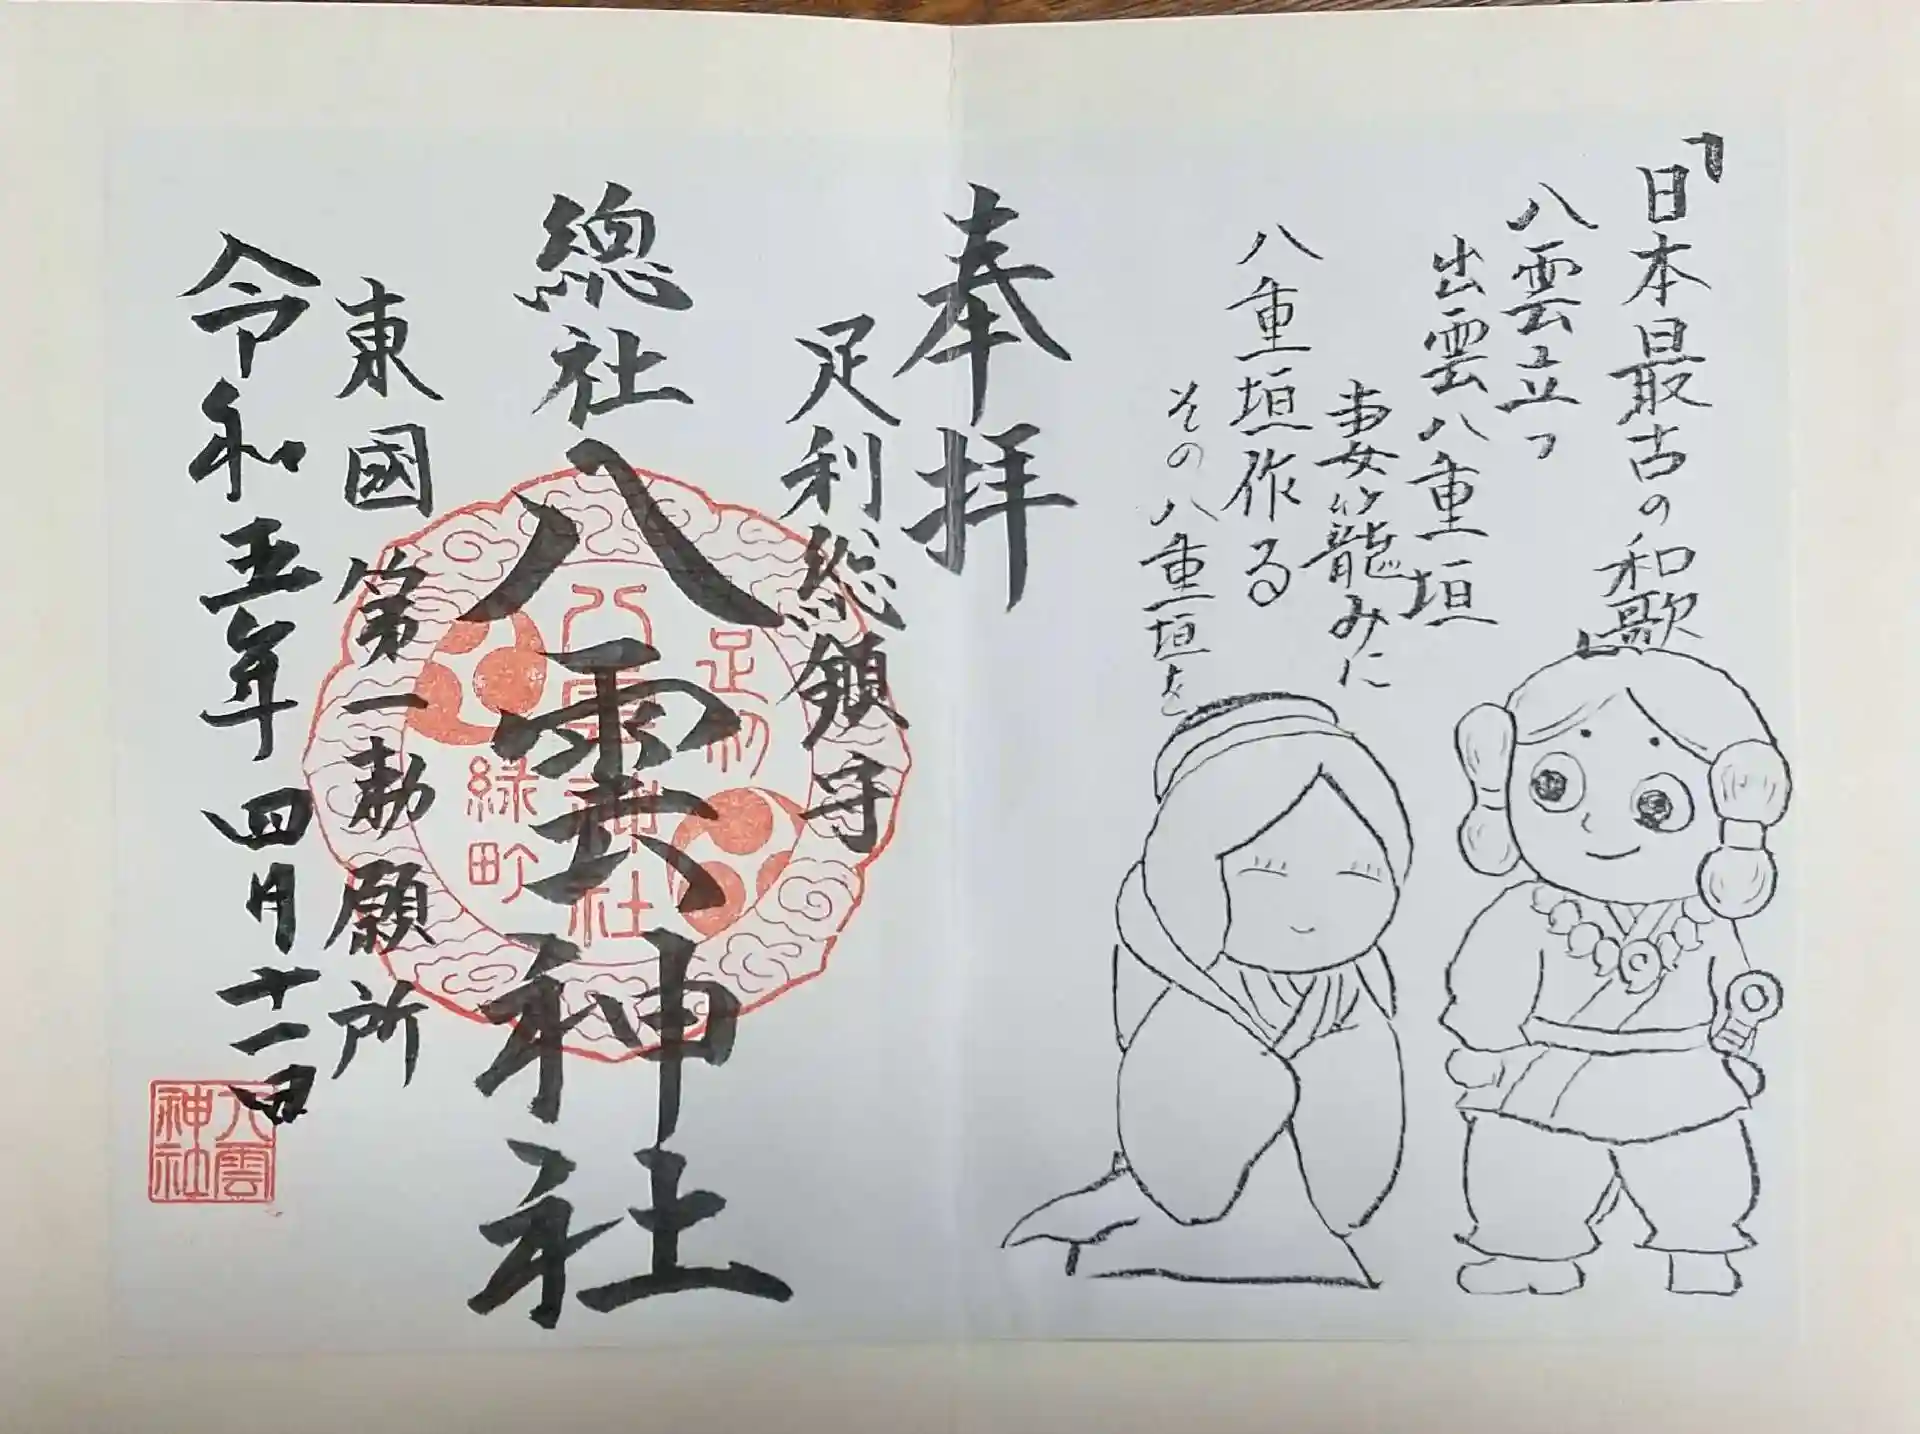 「日本最古の和歌」
八雲立つ
出雲八重垣
妻籠みに
八重垣作る
その八重垣を
奉拝
足利総鎮守
總社
八雲神社
東國第一勅願所
令和五年四月十一日
足利
八雲神社
緑町
八雲
神社